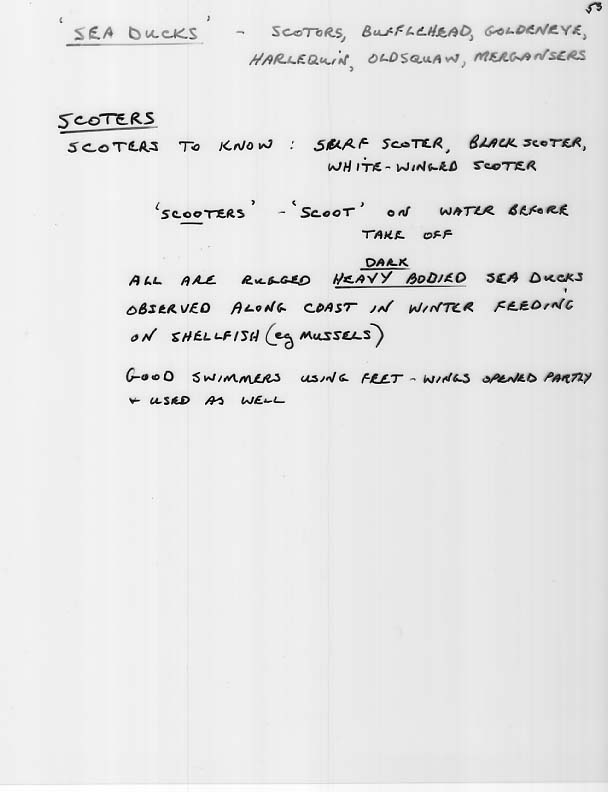 53
'SEA DUCKS' - SCOTORS, BUFFLEHEAD, GOLDENEYE,
HARLEQUIN, OLDSQUAW, MERGANSERS
SCOTERS
SCOTERS TO KNOW : SURF SCOTER, BLACK SCOTER,
WHITE-WINGED SCOTER
'SCOOTERS' - 'SCOOT' ON WATER BEFORE
TAKE OFF
DARK
ALL ARE RUGGED HEAVY BODIED SEA DUCKS
OBSERVED ALONG COAST IN WINTER FEEDING
ON SHELLFISH (eg MUSSELS)
GOOD SWIMMERS USING FEET - WINGS OPENED PARTLY
+ USED AS WELL